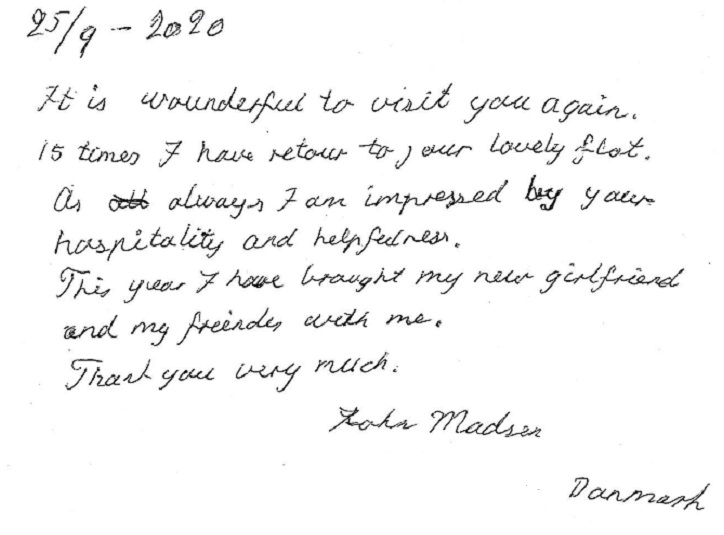 25/9 - 2020
It is wounderful to visit you again.
15 times I have retour to your lovely flat.
As always I am impressed by your
hospitality and helpfulness.
This year I have braught my new girlfriend
and my freinds with me.
Thank you very much.
John Madsen
Danmark